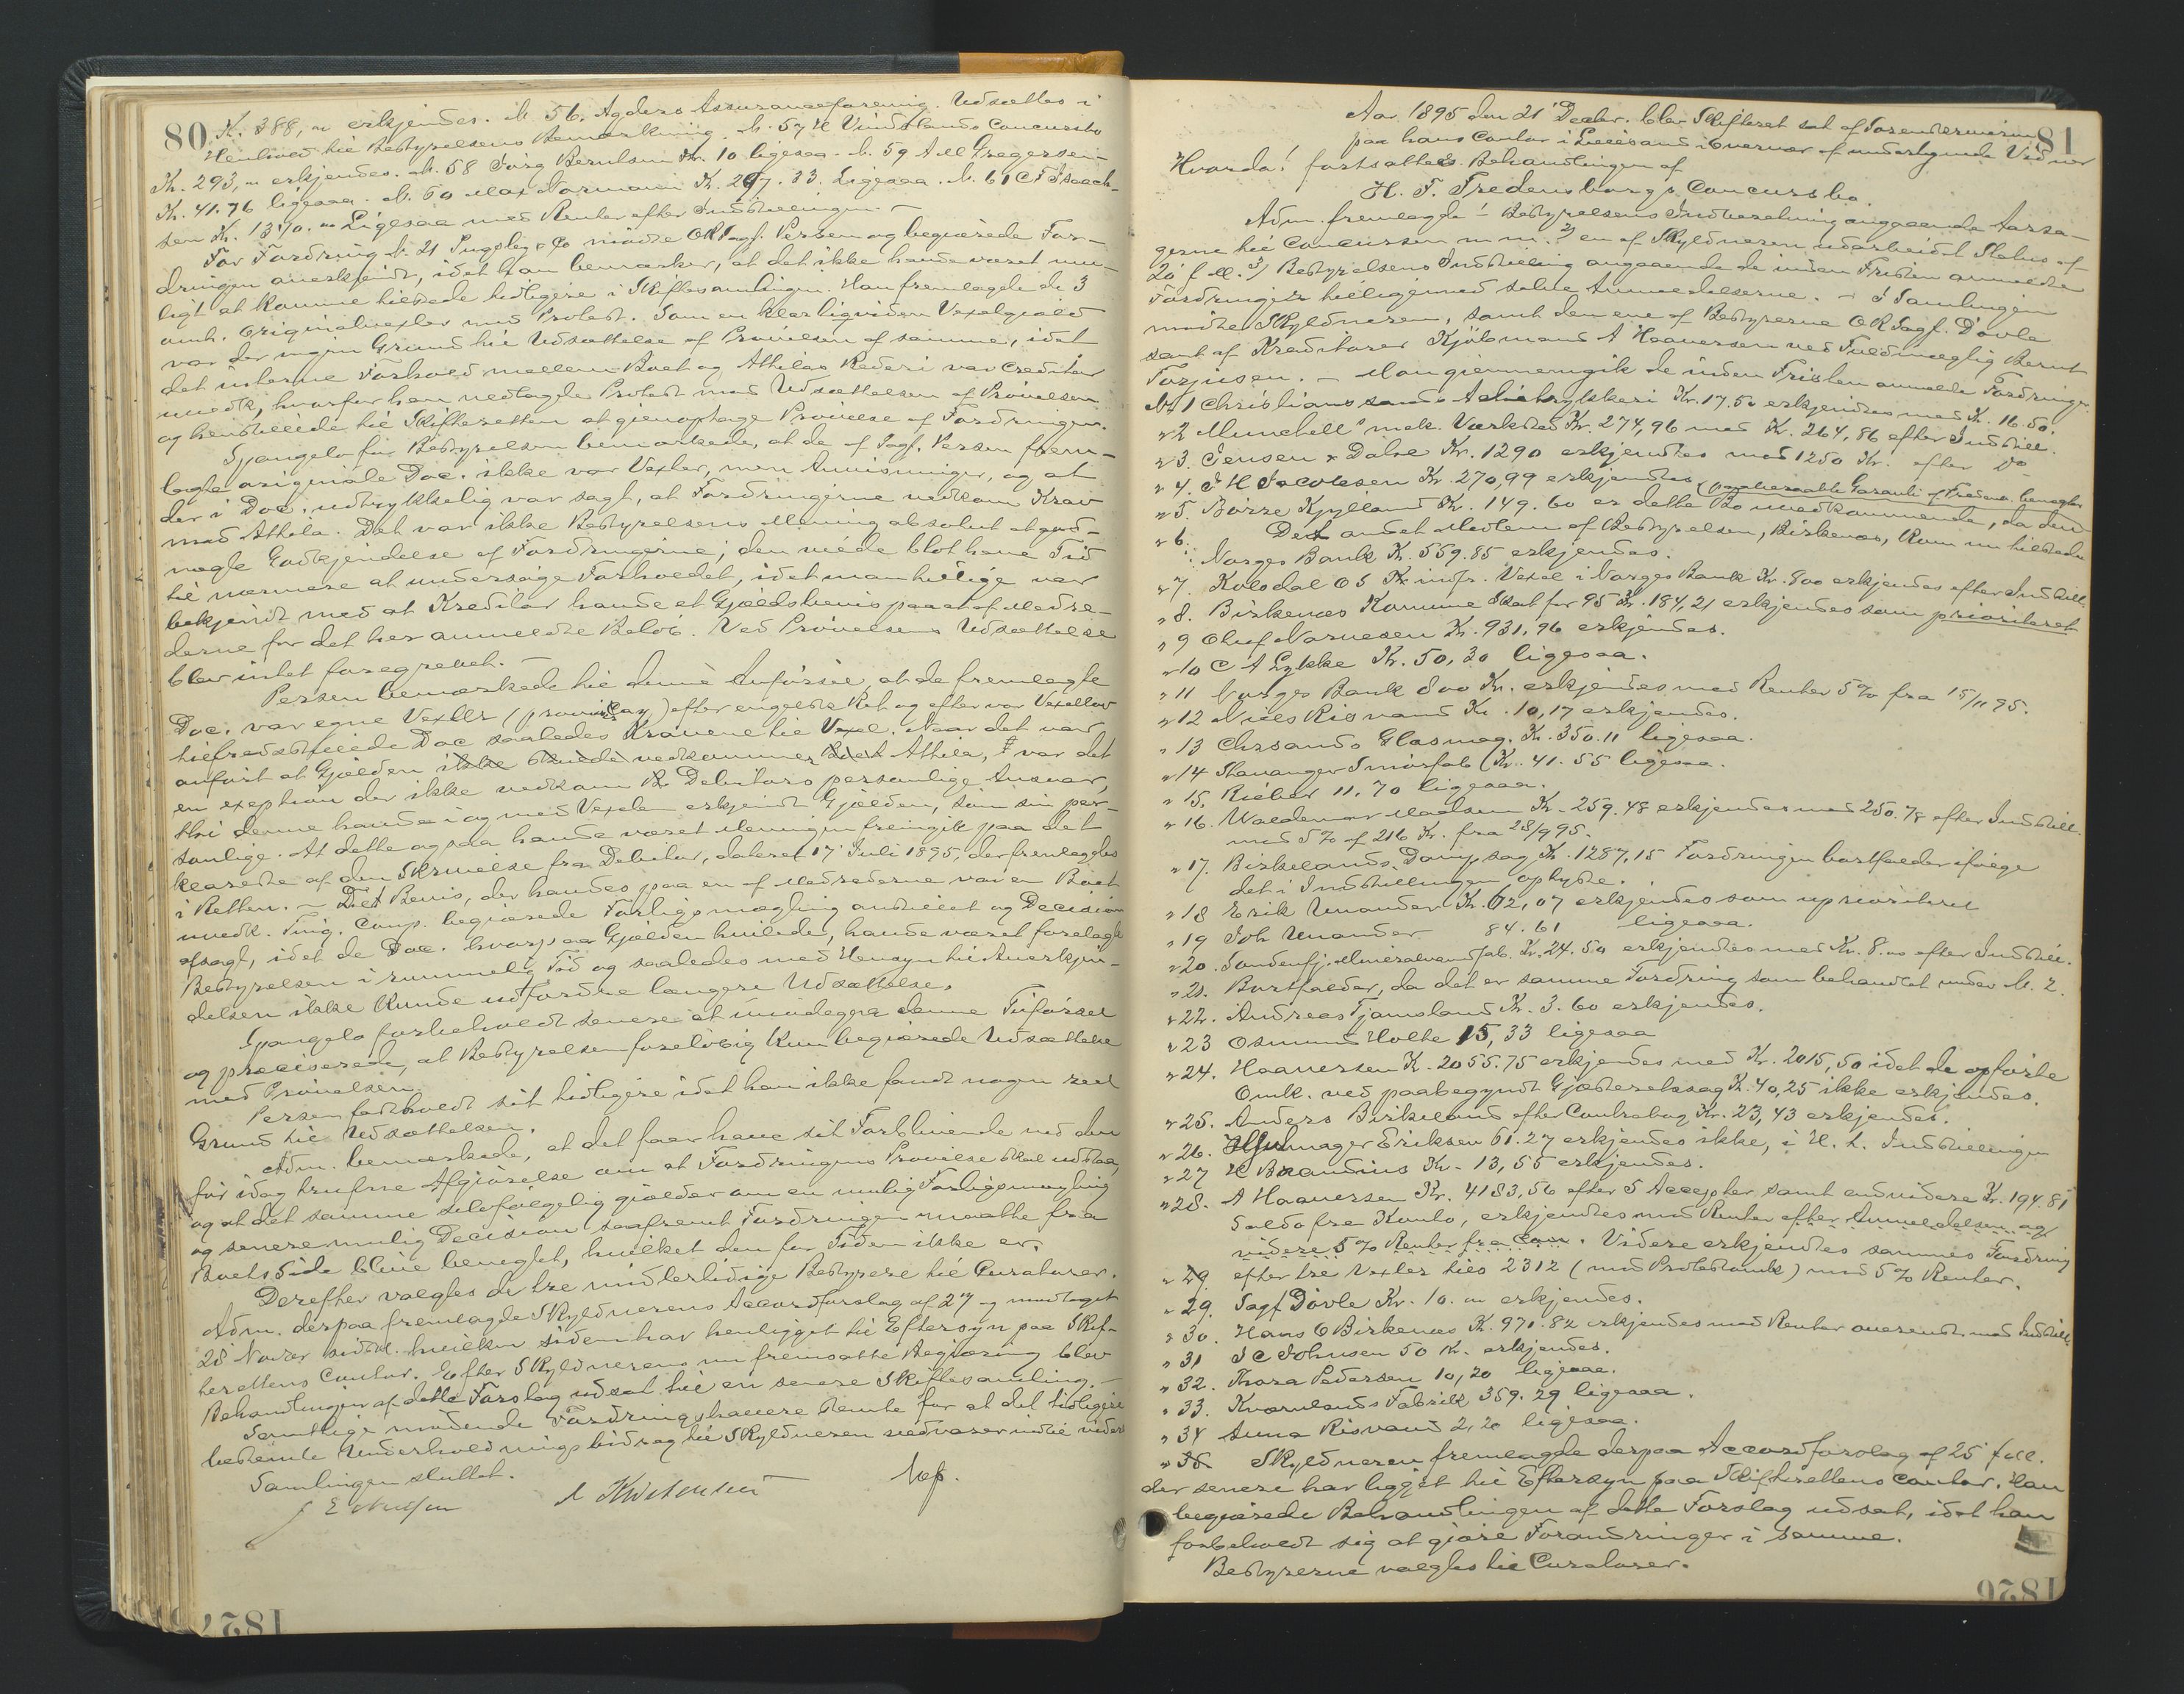 80
K. 388, " erkjendes. N. 56. Agders Assuranceforening. Udsættes i
Henhold til Bestyrelsens Bemærkning. N. 57 H Vindslands Concursbo
Kr. 293, " erkjendes. N. 58 Jørg Berntsen Kr. 10 ligesaa. N. 59 A M Gregersen
Kr. 41.76 ligesaa. N. 60 Max Normann K. 297.33. Ligesaa. N. 61 C F Isaach-
sen K. 1370. " Ligesaa med Renter efter Indstillingen. —
For Fordring N. 21 Pugsley & Co mødte ORSagf. Persen og begjærede For-
dringen anerkjendt, idet han bemærker, at det ikke havde været mu-
ligt at komme tilstede tidligere i Skiftesamlingen. Han fremlagde de 3
omh. Originalvexler med Protest. Som en klar liqviderer Vexelgjæld
var der ingen Grund til Udsættelse af Prøvelsen af samme, idet
det interne Forhold mellem Boet og Athilas Rederi var Creditor
uvedk., hvorfor han nedlagde Protest mod Udsættelsen af Prøvelsen
og henstillede til Skifteretten at gjenoptage Prøvelse af Fordringen.
Spangelo for Bestyrelsen bemærkede, at de af Sagf. Persen frem-
lagte originale Doc. ikke var Vexler, men Anvisninger, og at
der i Doc. udtrykkelig var sagt, at Fordringerne vedkom Krav
mod Athila. Det var ikke Bestyrelsens Mening absolut at
nægte Godkjendelse af Fordringerne; den vilde blot have Tid
til nærmere at undersøge Forholdet, idet man tillige var
bekjendt med at Kreditor havde et Gjældsbevis paa et af Medre-
derne for det her anmeldte Beløb. Ved Prøvelsens Udsættelse
blev intet foregrebet. —
Persen bemærkede til denne Anførsel, at de fremlagte
Doc. var egne Vexler ( ) efter engelsk Ret og efter vor Vexellov
tilfredsstillede Doc saaledes Kravene til Vexel. Naar det var
anført at Gjælden ikke skulde vedkommer Athila, var det
en exeption der ikke vedkom Debitors personlige Ansvar,
thi denne havde i og med Vexelen erkjendt Gjælden, som sin per-
sonlige. At dette ogsaa havde været Meningen fremgik paa det
klareste af den Skrivelse fra Debitor, dateret 17' Juli 1895, der fremlagdes
i Retten. — Det Bevis, der havdes paa en af Medrederne var en Boet
uvedk. Ting. Comp. begjærede Forligsmægling anstillet og Decision
afsagt, idet de Doc. hvorpaa Gjælden hvilede, havde været forelagt
Bestyrelsen i rummelig Tid og saaledes med Hensyn til Anerkjen-
delsen ikke kunde udfordre længere Udsættelse.
Spangelo forbeholdt senere at imødegaa denne Tilførsel
og præciserede, at Bestyrelsen foreløbig kun begjærede Udsættelse
med Prøvelsen.
Persen fastholdt sit tidligere idet han ikke fandt nogen reel
Grund til Udsættelsen.
Adm. bemærkede, at det faar have sit Forblivende ved den
før idag trufne Afgjørelse om at Fordringens Prøvelse skal udstaa,
og at det samme selvfølgelig gjælder om en mulig Forligsmægling
og senere mulig Decision saafremt Fordringen maatte fra
Boets Side blive benegtet, hvilket den for Tiden ikke er.
Derefter valgtes de tre midlertidige Bestyrere til Curatorer.
Adm. derpaa fremlagde Skyldnerens Accordforslag af 27 og modtaget
28 Novbr sidstl. hvilken siden har henligget til Eftersyn paa Skif-
terettens Contor. Efter Skyldnerens nu fremsatte Begjæring blev
Behandlingen af dette Forslag udsat til en senere Skiftesamling. —
Samtlige mødende Fordringshavere stemte for at det tidligere
bestemte Underholdningsbidrag til Skyldneren vedvarer indtil videre
Samlingen sluttet.
81
Aar 1895 den 21' Decbr. blev Skifteret sat af Sorenskriveren
paa hans Contor i Lillesand i Overvær af undertegnede Vidner
Hvorda! fortsattes Behandlingen af
H. T. Fredensborgs Concursbo.
Adm. fremlagde 1 Bestyrelsens Indberetning angaaende Aarsa-
gerne til Concursen m m. 2) en af Skyldneren udarbeidet Status af
20' f. M. 3) Bestyrelsens Indstilling angaaende de inden Fristen anmeldte
Fordringer tilligemed selve Anmeldelserne. — I Samlingen
mødte Skyldneren, samt den ene af Bestyrerne ORSagf. Døvle
samt af Kreditorer Kjøbmand A Haaversen ved Fuldmægtig Bernt
Torjusen. — Man gjennemgik de inden Fristen anmeldte Fordringer.
N. 1 Christianssands Actiebryggeri Kr. 17.50 erkjendtes med K. 16.50.
" 2 Munchells mek. Værksted Kr. 274,96 med Kr. 264,86 efter Indstill.
" 3. Jensen & Dahl Kr. 1290 erkjendtes med 1250 Kr. efter Do
" 4. J H Jacobsen Kr. 270,99 erkjendtes
" 5. Børre Kjylland Kr. 149.60 er dette Bo uvedkommende, da den
Det andet Medlem af Bestyrelsen, Birkenes, kom nu tilstede
" 6. Norges Bank Kr. 559.85 erkjendes.
" 7. Kolsdal O S Kr. indfr. Vexel i Norges Bank Kr. 800 erkjendes efter Indstill.
" 8. Birkenes Komune Skat for 95 Kr. 184,21 erkjendes som prioriteret
" 9 Oluf Narvesen Kr. 931,96 erkjendes.
" 10 C A Lykke Kr. 50,30 ligesaa.
" 11 Norges Bank 800 Kr. erkjendes med Renter 5% fra 15/11 95.
" 12 Niels Risvand Kr. 10,17 erkjendes.
" 13 Chrsands Glasmag. K. 350.11 ligesaa.
" 14 Stavanger Smørfab Kr. 41.55 ligesaa.
" 15. Rieber 11.70 ligesaa.
" 16. Waldemar Madsen Kr. 259.48 erkjendes med 250.78 efter Indstill.
med 5% af 216 Kr. fra 28/9 95.
" 17. Birkelands Dampsag Kr. 1287,15 Fordringen bortfalder ifølge
det i Indstillingen oplyste.
" 18 Erik Unander Kr. 62,07 erkjendes som uprioriteret
" 19 Joh Unander 84.61 ligesaa.
" 20. Sandefj. Mineralvandfab. Kr. 24.50 erkjendtes med Kr. 8.00 efter Indstill.
" 21. Bortfalder, da det er samme Fordring som behandlet under N. 2.
" 22. Andreas Tjamsland K. 3.60 erkjendes.
" 23 Osmund Holte 15,33 ligesaa
" 24. Haaversen K. 2055.75 erkjendes med Kr. 2015,50 idet de opførte
Omk. ved paabegyndt Gjældsretssag K. 40,25 ikke erkjendes.
" 25. Anders Birkeland efter Contrabog Kr. 23,43 erkjendes.
" 26. Hjulmager Eriksen 61.27 erkjendes ikke, i H. t. Indstillingen
" 27 H Brandius Kr. 13,55 erkjendes.
" 28. A Haaversen Kr. 4183,56 efter 5 Accepter samt endvidere Kr. 194.81
Saldo fra Konto, erkjendtes med Renter efter Anmeldelsen og
videre 5% Renter fra . Videre erkjendtes sammes Fordring
" 29 efter tre Vexler tils 2312 (med Protestomk) med 5% Renter.
" 29. Sagf Døvle Kr. 10. " erkjendes.
" 30. Hans O Birkenes K. 971.82 erkjendes med Renter overensst. med Indstill.
" 31 J C Johnsen 50 K. erkjendes.
" 32. Thora Pedersen 10,20 ligesaa.
" 33. Kværnlands Fabrik 359.29 ligesaa.
" 34 Anna Risvand 2,20 ligesaa.
" 35 Skyldneren fremlagde derpaa Accordforslag af 25' f. M.
der senere har ligget til Eftersyn paa Skifterettens Contor. Han
begjærede Behandlingen af dette Forslag udsat, idet han
forbeholdt sig at gjøre Forandringer i samme.
Bestyrerne valgtes til Curatorer.